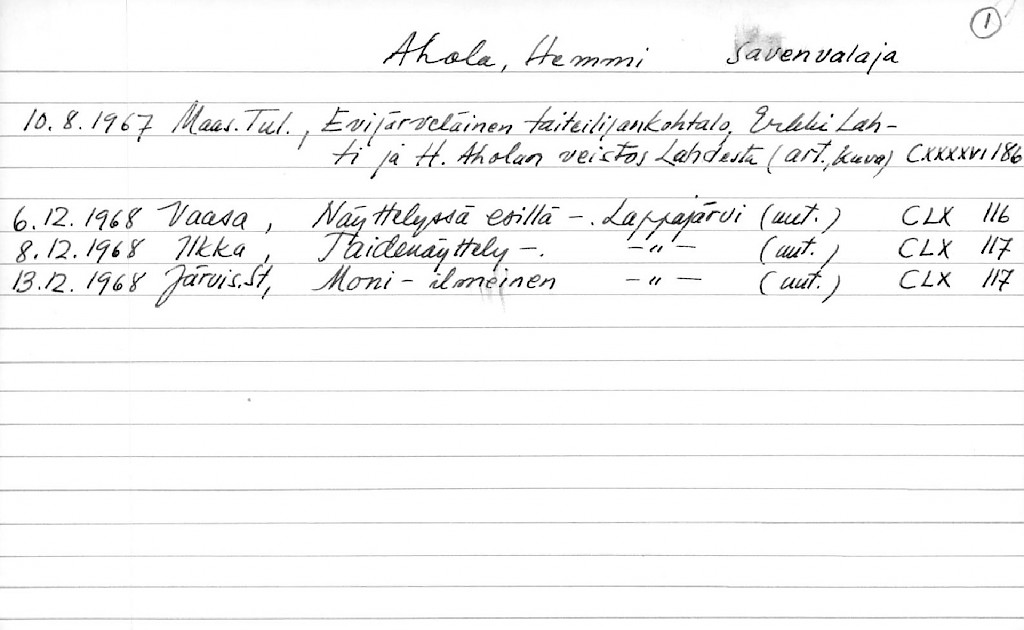 1
Ahola, Hemmi savenvalaja
10.8.1967 Maas.Tul., Evijärveläinen taiteilijankohtalo, Erkki Lah-
ti ja H. Aholan veistos Lahdesta (art., kuva) CXXXXVI 186
6.12.1968 Vaasa, Näyttelyssä esillä -. Lappajärvi (uut.) CLX 116
8.12.1968 Ilkka, Taidenäyttely -. -"- (uut.) CLX 117
13.12.1968 Järvis.St, Moni-ilmeinen -"- (uut.) CLX 117